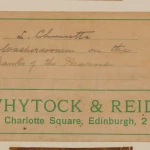 Washerwomen on the
Banks of the
WHYTOCK & REID
Charlotte Square, Edinburgh, 2